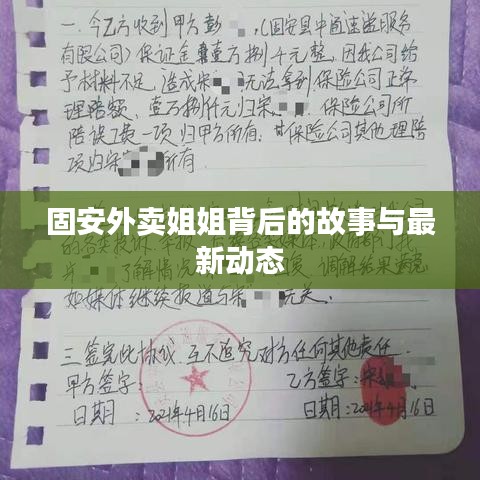 一.今乙方收到甲方彭 ,(固安县中通速溢服务
有限公司)保证金壹万捌千元整,因我公司给
予材料不足,造成宋 无法拿到保险公司正常
理赔额,壹万捌仟元归宋 .保险公司所
陪误工费一项归甲方所有,其保险公司其他理陪
项归宋 所有.
固安外卖姐姐背后的故事与最
新动态
了解情况 调解结果满意
如媒体继续报道与宋 无关.
三.签完此协议,互不追究对方任何其他责任.
甲方签字: 乙方签字:宋
日期: 2021年4月16日 日期:2021年4月16日